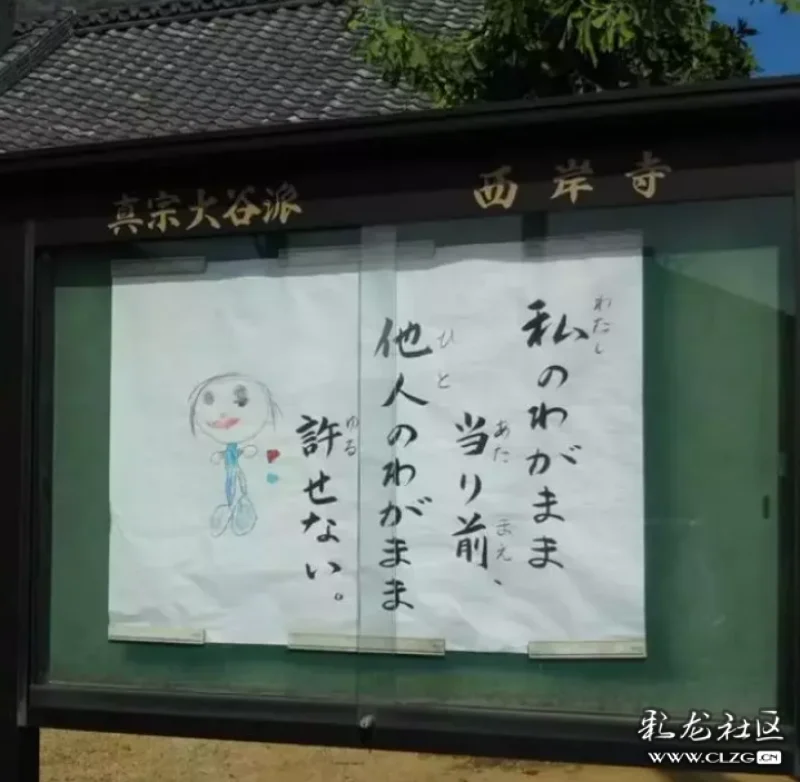 真宗大谷派
西岸寺
私のわがまま
わたし
当り前、
あた
まえ
他人のわがまま
ひと
許せない。
ゆる
彩龙社区
WWW.CLZG.CN